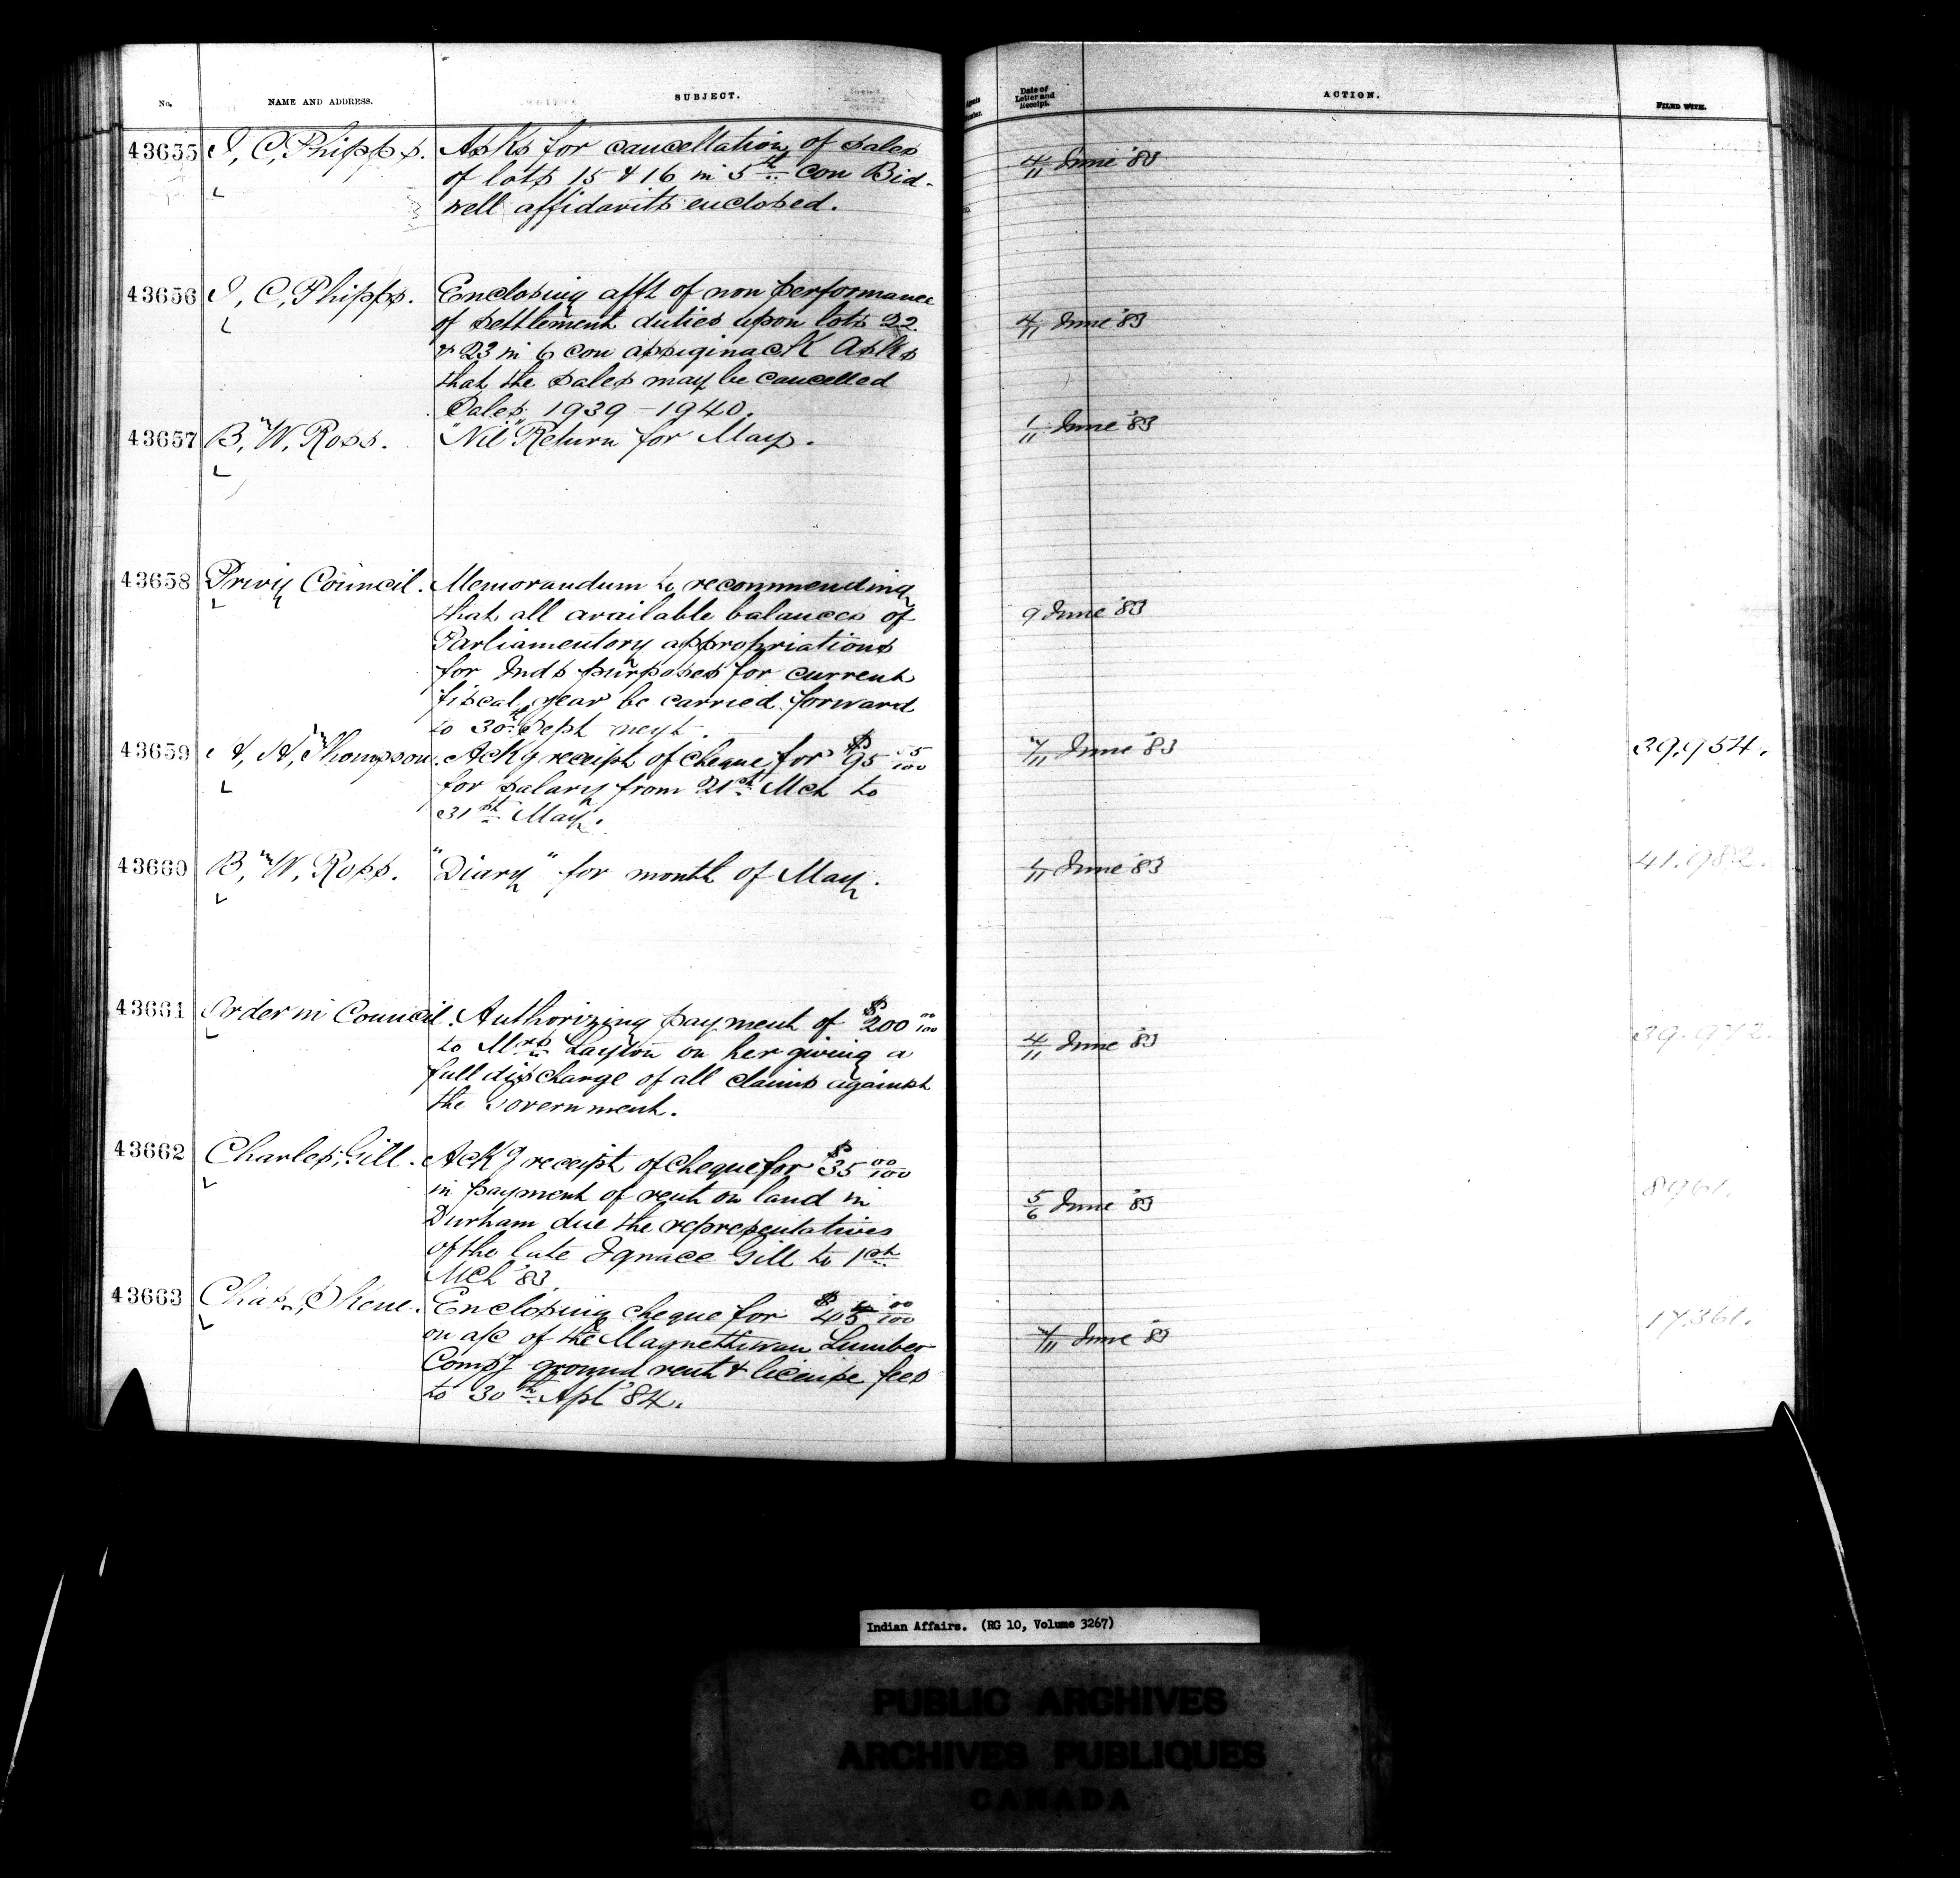 No.
NAME AND ADDRESS.
SUBJECT.
Date of Letter and Receipt.
ACTION.
FILED WITH.
43655 J, C, Phipps. Asks for cancellation of sales
of lots 15 & 16 in 5th con Bid-
well affidavits enclosed.
4/11 June '83
43656 J, C, Phipps. Enclosing afft of non performance
of settlement duties upon lots 22
& 23 in 6 con assiginack Asks
that the sales may be cancelled
Sales, 1939 - 1940.
4/11 June '83
43657 B, W, Ross. "Nil" Return for May.
1/11 June '83
43658 Privy Council. Memorandum to recommending
that all available balances of
Parliamentory appropriations
for Inds purposes for current
fiscal year be carried forward
to 30th Sept next.
9 June '83
43659 A, H, Thompson. Ackg receipt of cheque for $95
for salary from 21st Mch to
31st May.
7/11 June '83
39,954.
43660 B, W, Ross. "Diary" for month of May.
1/11 June '83
41.982.
43661 Order in Council. Authorizing payment of $200 00/100
to Mrs Layton on her giving a
full discharge of all claims against
the Government.
4/11 June '83
39.972.
43662 Charles, Gill. Ackg receipt of cheque for $35 00/100
in payment of rent on land in
Durham due the representatives
of the late Ignace Gill to 1st
Mch '83
5/6 June '83
8961.
43663 Chas, Skene. Enclosing cheque for $45 00/100
on a/c of the Magnettiwan Lumber
Compy ground rent & license fees
to 30th Apl '84.
7/11 June '83
17.361.
Indian Affairs. (RG 10, Volume 3267)
PUBLIC ARCHIVES
ARCHIVES PUBLIQUES
CANADA